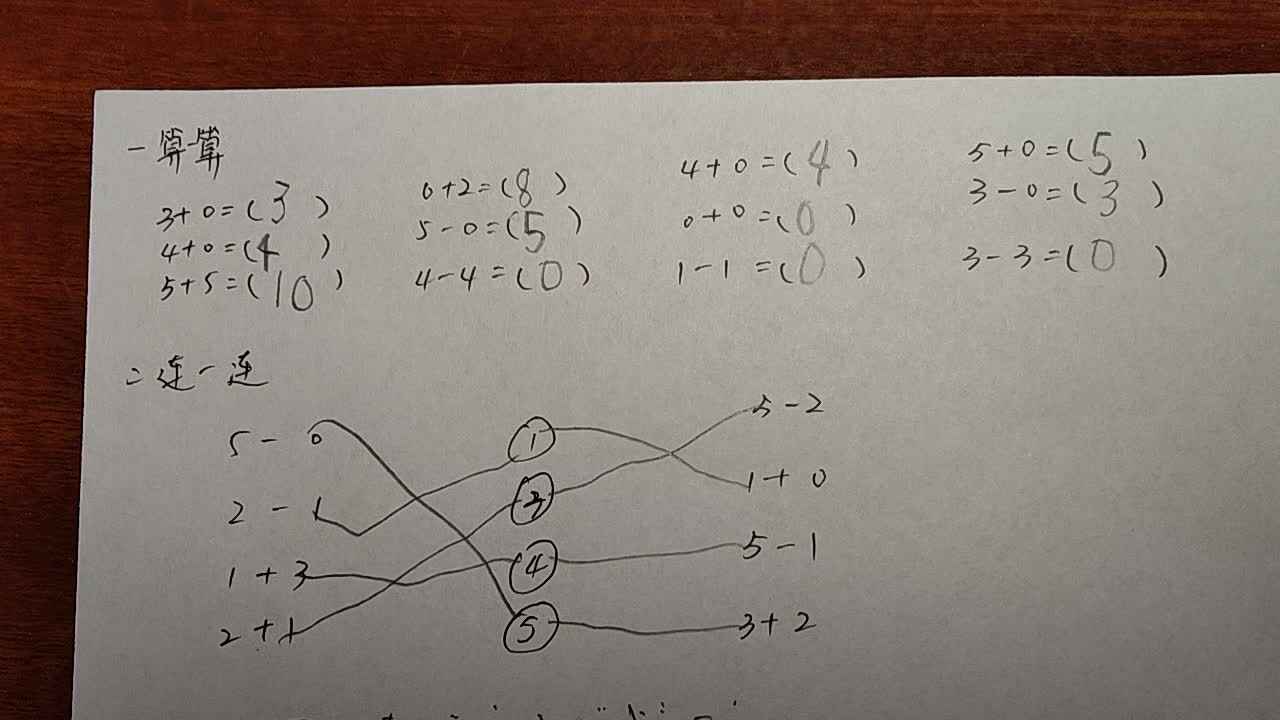 一算算
3+0=(3) 0+2=(8) 4+0=(4) 5+0=(5)
4+0=(4) 5-0=(5) 0+0=(0) 3-0=(3)
5+5=(10) 4-4=(0) 1-1=(0) 3-3=(0)
二连一连
5-0 ① 5-2
2-1 ③ 1+0
1+3 ④ 5-1
2+1 ⑤ 3+2